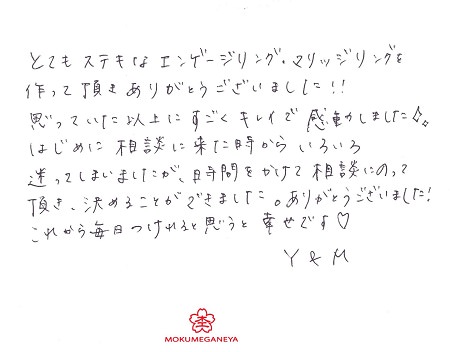 とてもステキなエンゲージリング、マリッジリングを
作って頂きありがとうございました!!
思っていた以上にすごくキレイで感動しました✧。
はじめに相談に来た時からいろいろ
迷ってしまいましたが、時間をかけて相談にのって
頂き、決めることができました。ありがとうございました!
これから毎日つけれると思うと幸せです♡
Y & M
MOKUMEGANEYA